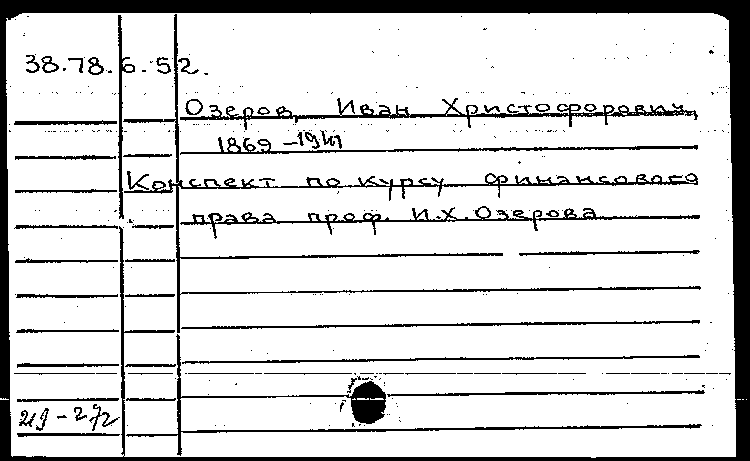 38.78.6.52.
Озеров, Иван Христофорович,
1869 –1941
Конспект по курсу финансового
права проф. И.Х.Озерова